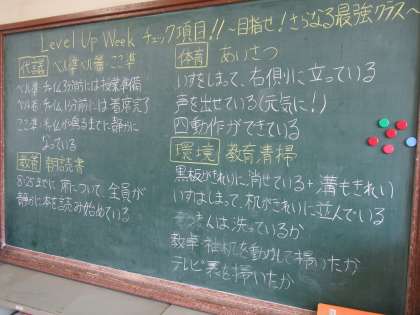 Level Up Week チェック項目!! ～目指せ!さらなる最強クラス～
代議 ベル準ベル着ここ準
ベル準 チャイム3分前には授業準備
ベル着 チャイム1分前には着席完了
ここ準 チャイムが鳴るまでに静かに
なっている
教養 朝読書
8:25までに席について全員が
静かに本を読み始めている
体育 あいさつ
いすをしまって、右側に立っている
声を出せている(元気に!)
四動作ができている
環境 教育清掃
黒板がきれいに消せている+溝もきれい
いすはしまって、机がきれいに並んでいる
ぞうきんは洗っているか
教卓 袖机を動かして掃いたか
テレビ裏を掃いたか